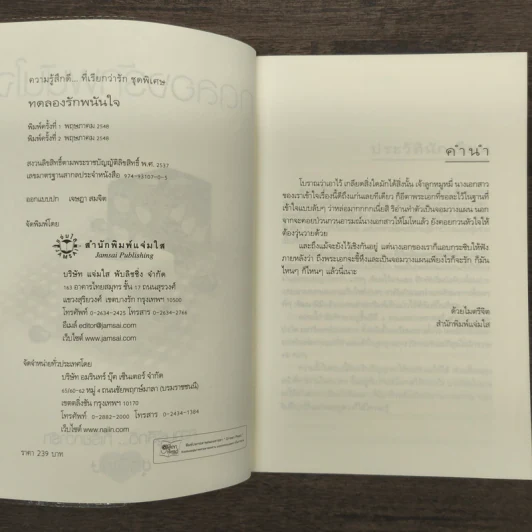 ความรู้สึกดี... ที่เรียกว่ารัก ชุดพิเศษ
ทดลองรักพนันใจ
พิมพ์ครั้งที่ 1 พฤษภาคม 2548
พิมพ์ครั้งที่ 2 พฤษภาคม 2548
สงวนลิขสิทธิ์ตามพระราชบัญญัติลิขสิทธิ์ พ.ศ. 2537
เลขมาตรฐานสากลประจำหนังสือ 974-93107-0-5
ออกแบบปก เจษฎา สมจิต
จัดพิมพ์โดย
สำนักพิมพ์แจ่มใส
Jamsai Publishing
บริษัท แจ่มใส พับลิชชิ่ง จำกัด
163 อาคารไทยสมุทร ชั้น 17 ถนนสุรวงศ์
แขวงสุริยวงศ์ เขตบางรัก กรุงเทพฯ 10500
โทรศัพท์ 0-2634-2425 โทรสาร 0-2634-2766
อีเมล์ editor@jamsai.com
เว็บไซต์ www.jamsai.com
จัดจำหน่ายทั่วประเทศโดย
บริษัท อมรินทร์ บุ๊ค เซ็นเตอร์ จำกัด
65/60-62 หมู่ 4 ถนนชัยพฤกษ์มาลา (บรมราชชนนี)
เขตตลิ่งชัน กรุงเทพฯ 10170
โทรศัพท์ 0-2882-2000 โทรสาร 0-2434-1384
เว็บไซต์ www.naiin.com
ราคา 239 บาท
คำนำ
โบราณว่าเอาไว้ เกลียดสิ่งใดมักได้สิ่งนั้น เจ้าลูกหมูหมี่ นางเอกสาว
ของเราเข้าใจเรื่องนี้ดีถึงแก่นเลยทีเดียว ก็อีตาพระเอกที่ขอละไว้ในฐานที่
เข้าใจแบบลับๆ ว่าหล่อมากกกกเนี่ยสิ ริอ่านทำตัวเป็นจอมวางแผน นอก
จากจะคอยป่วนกวนอารมณ์นางเอกสาวให้โมโหแล้ว ยังคอยกวนหัวใจให้
ต้องวุ่นวายด้วย
และถึงแม้จะยังไว้เชิงกันอยู่ แต่นางเอกของเราก็แอบกระซิบให้ฟัง
ภายหลังว่า ถึงพระเอกจะขี้หึงและเป็นจอมวางแผนเพียงไรก็จะรัก ก็มัน
ไหนๆ ก็ไหนๆ แล้วนี่เนาะ
ด้วยไมตรีจิต
สำนักพิมพ์แจ่มใส